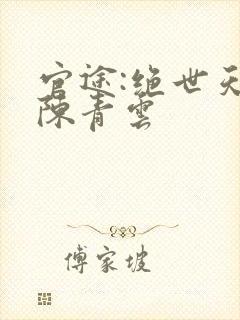 官途:绝世天
陈青云
傅家坡